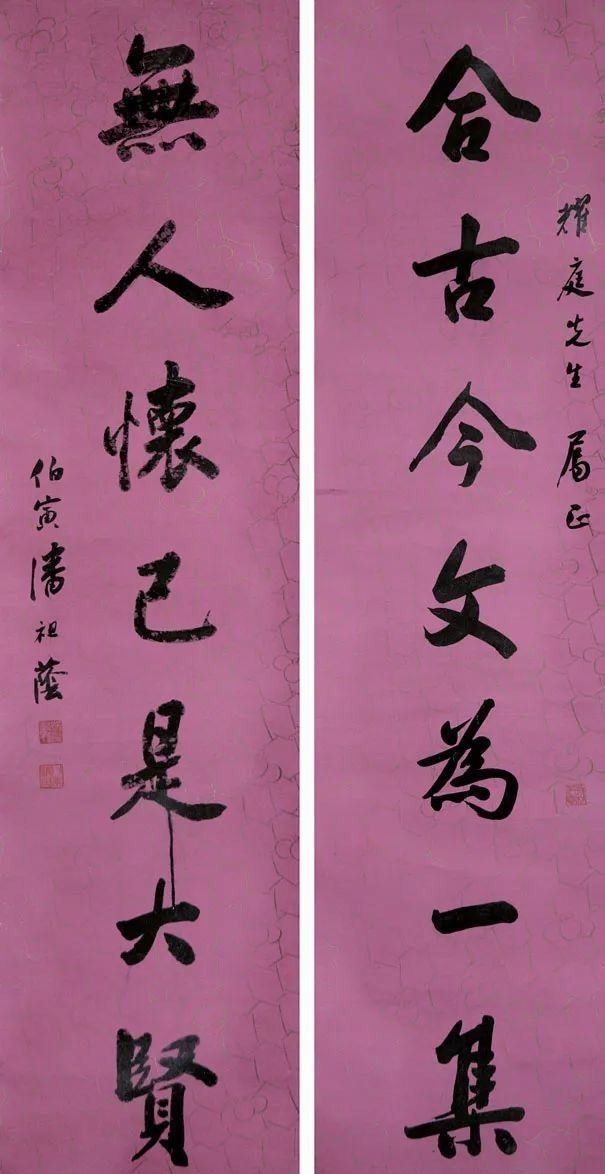 耀庭先生 属正
合古今文為一集
無人懷已是大賢
伯寅潘祖蔭